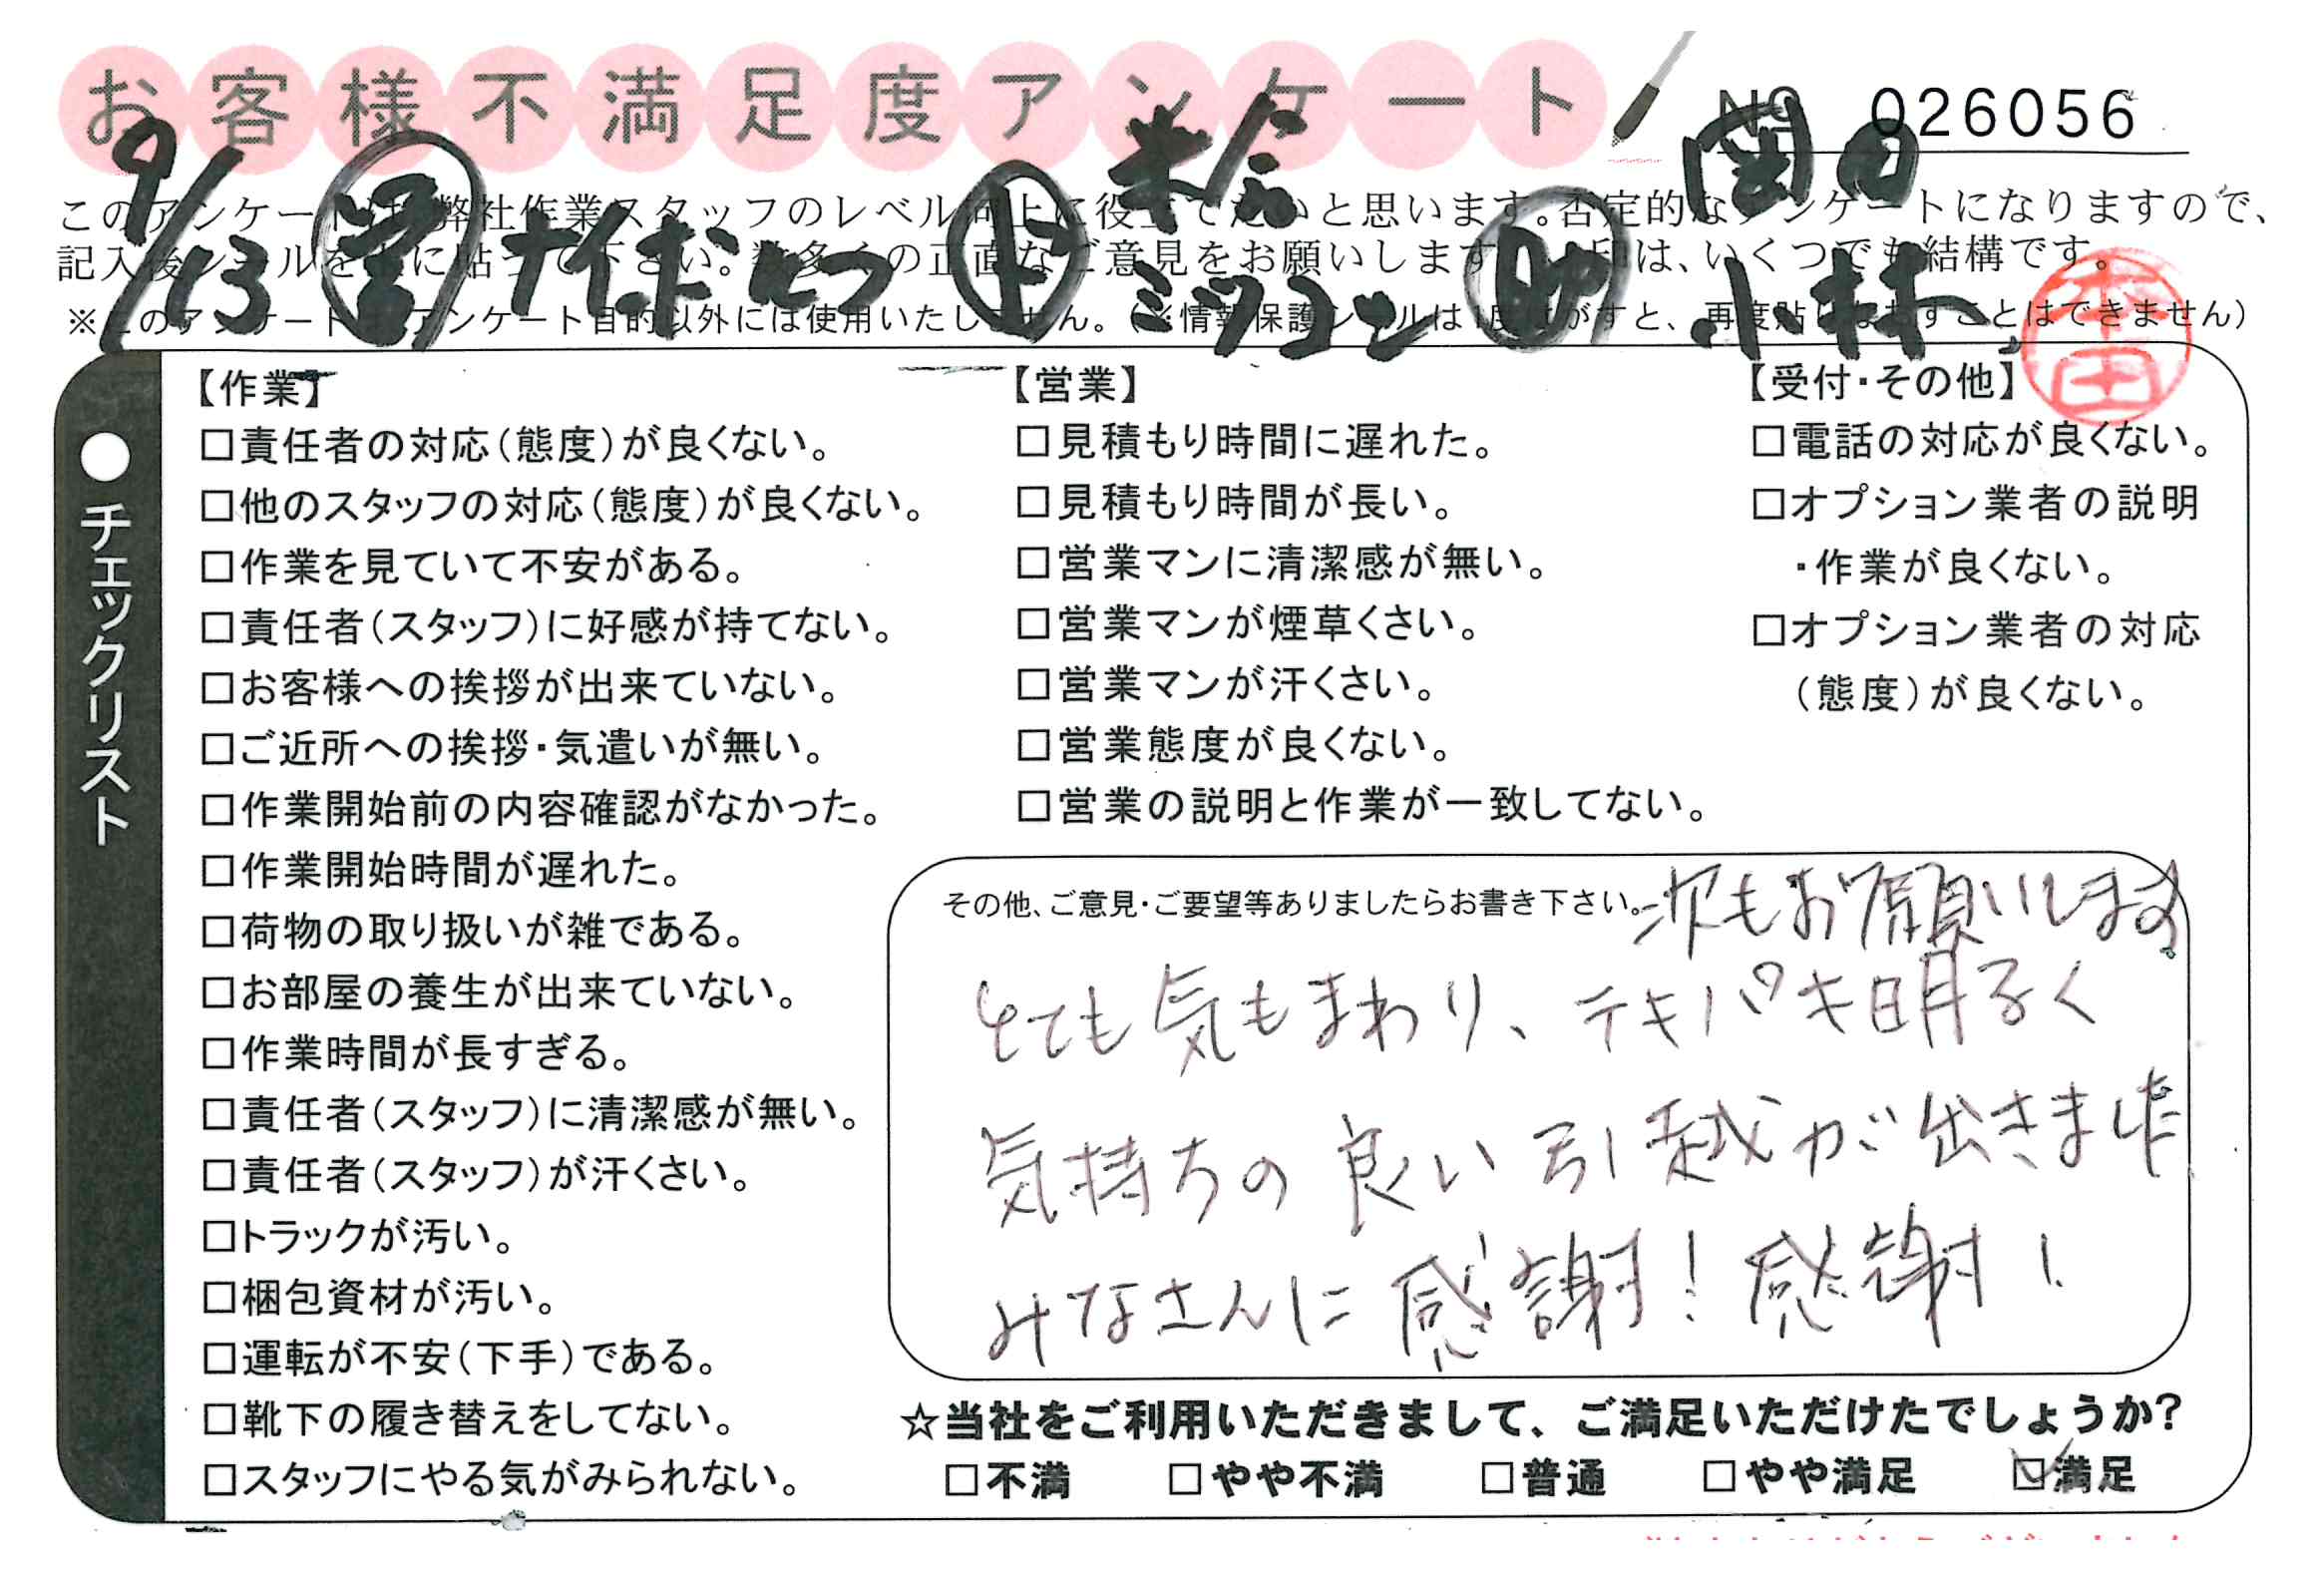 お客様不満足度アンケート
№ 026056
9/13 営 ナイトボヒつ ド 米倉 ミツコン 助 岡田 小林
このアンケートは、弊社作業スタッフのレベル向上に役立てたいと思います。否定的なアンケートになりますので、
記入後シールを上に貼って下さい。数多くの正直なご意見をお願いします。 印は、いくつでも結構です。
※このアンケートは、アンケート目的以外には使用いたしません。(※情報保護シールは1度はがすと、再度貼りなおすことはできません)
本田
●チェックリスト
【作業】
□責任者の対応(態度)が良くない。
□他のスタッフの対応(態度)が良くない。
□作業を見ていて不安がある。
□責任者(スタッフ)に好感が持てない。
□お客様への挨拶が出来ていない。
□ご近所への挨拶・気遣いが無い。
□作業開始前の内容確認がなかった。
□作業開始時間が遅れた。
□荷物の取り扱いが雑である。
□お部屋の養生が出来ていない。
□作業時間が長すぎる。
□責任者(スタッフ)に清潔感が無い。
□責任者(スタッフ)が汗くさい。
□トラックが汚い。
□梱包資材が汚い。
□運転が不安(下手)である。
□靴下の履き替えをしてない。
□スタッフにやる気がみられない。
【営業】
□見積もり時間に遅れた。
□見積もり時間が長い。
□営業マンに清潔感が無い。
□営業マンが煙草くさい。
□営業マンが汗くさい。
□営業態度が良くない。
□営業の説明と作業が一致してない。
【受付・その他】
□電話の対応が良くない。
□オプション業者の説明
・作業が良くない。
□オプション業者の対応
(態度)が良くない。
その他、ご意見・ご要望等ありましたらお書き下さい。
次もお願いします。
とても気もまわり、テキパキ明るく
気持ちの良い引越が出きました
みなさんに感謝!感謝!
☆当社をご利用いただきまして、ご満足いただけたでしょうか?
□不満 □やや不満 □普通 □やや満足 ☑満足